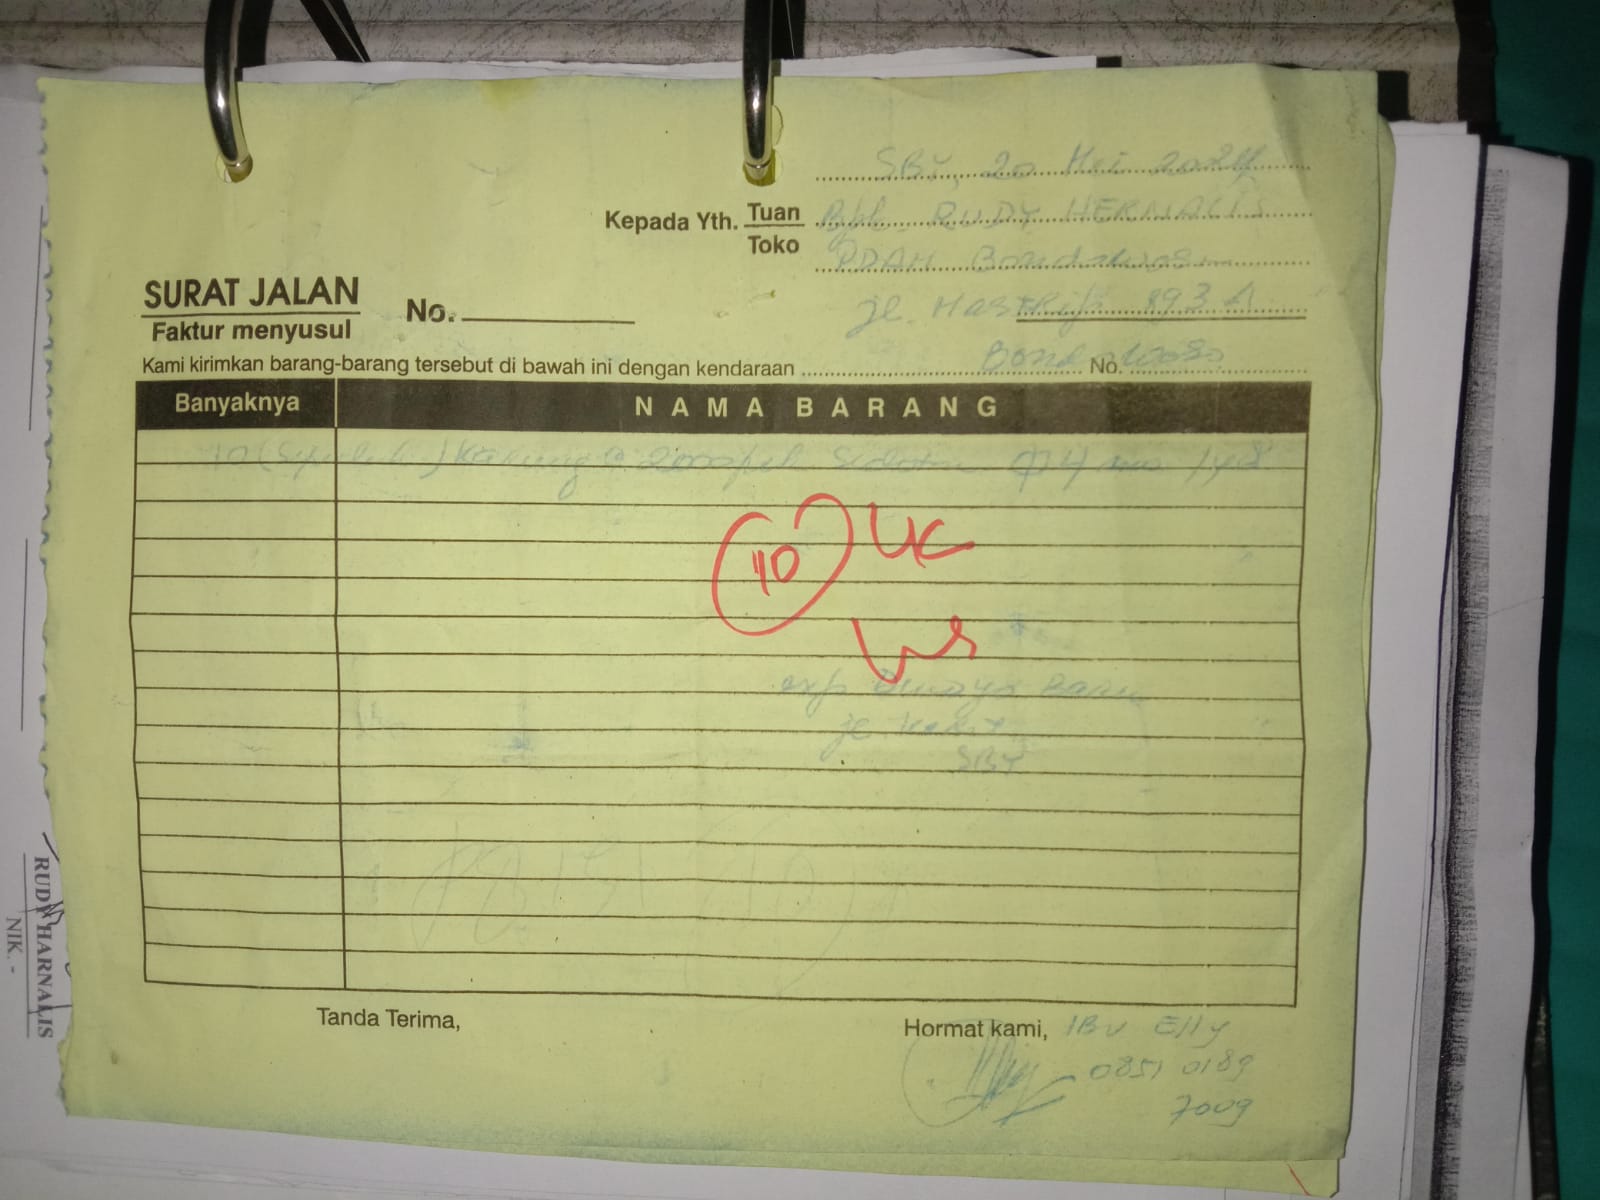 SBY, 20 Mei 2024
Kepada Yth. Tuan
Toko
Bpk. RUDY HERNALIS
PDAM Bondowoso
jl. Mastrip 893 A
Bondowoso
SURAT JALAN
Faktur menyusul
No.
Kami kirimkan barang-barang tersebut di bawah ini dengan kendaraan No.
Banyaknya NAMA BARANG
10 (Sepuluh) karung @
10
jl.
SBY
Tanda Terima,
Hormat kami, IBu Elly
0851 0189
7009
RUDY HARNALIS
NIK. -